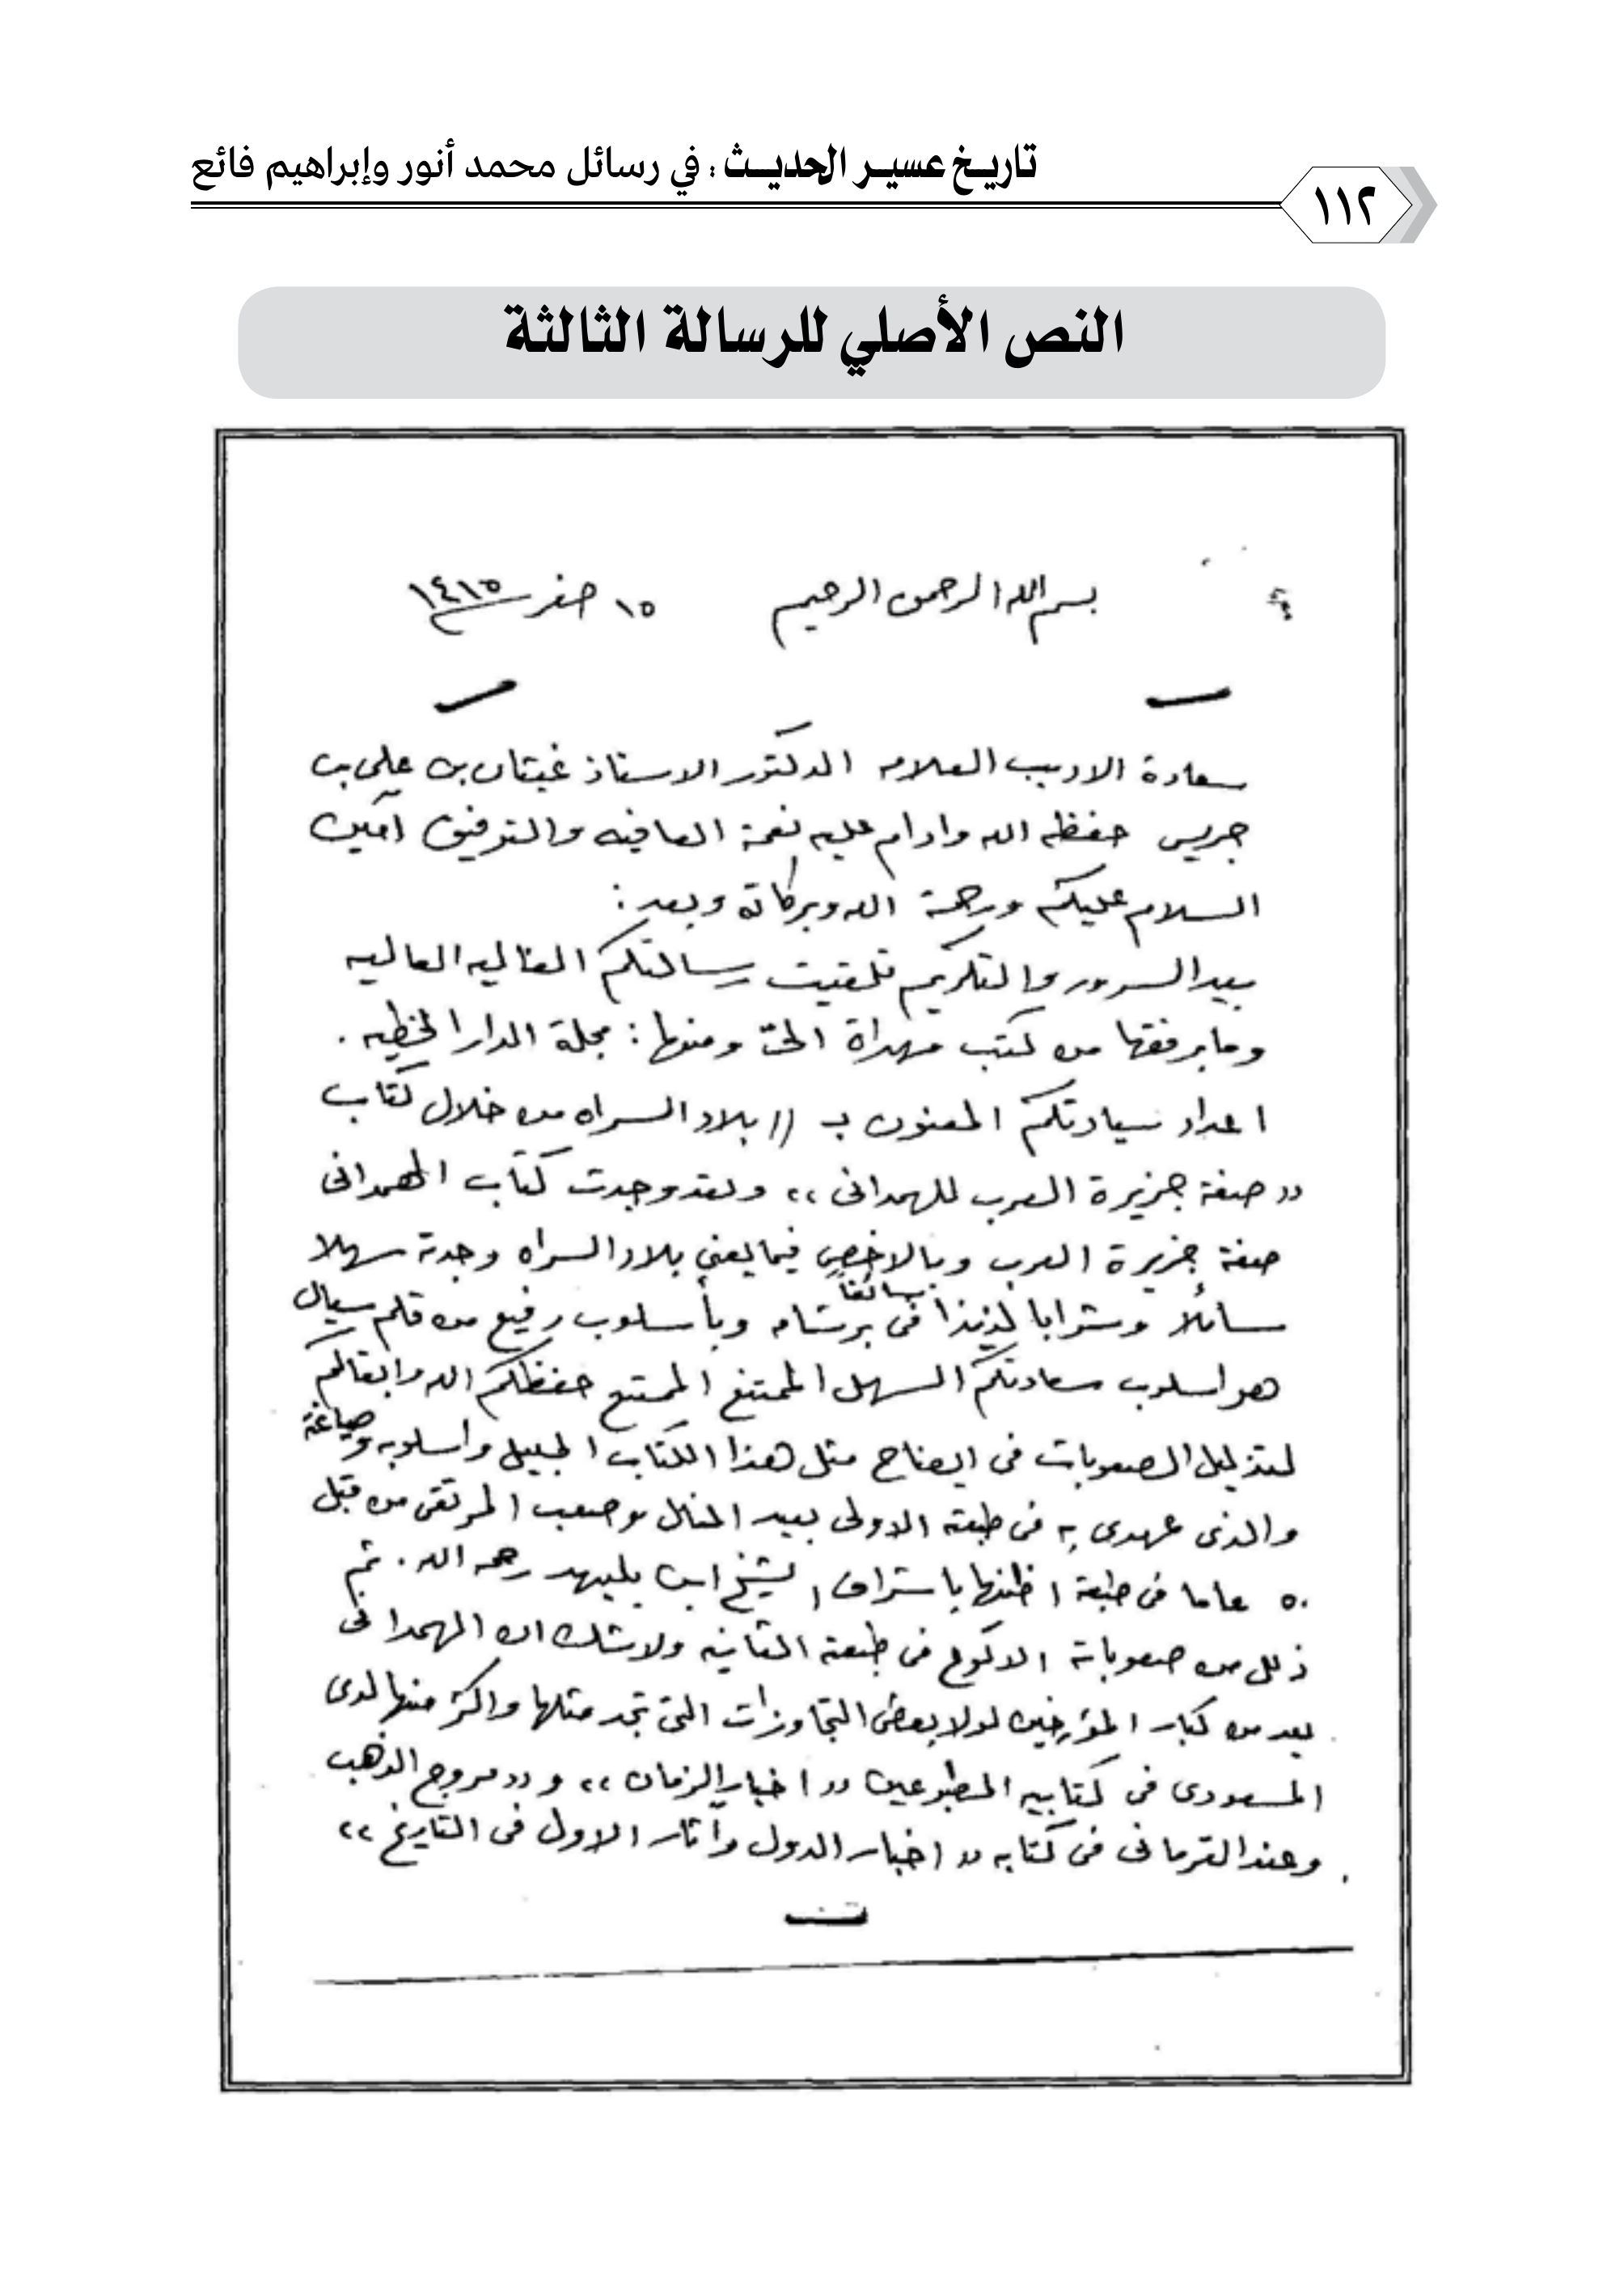 تاريخ عسير الحديث : في رسائل محمد أنور وإبراهيم فائع
١١٢
النص الأصلي للرسالة الثالثة
بسم الله الرحمن الرحيم ١٥ صفر ١٤١٥
سعادة الاديب العلامه الدكتور الاستاذ غيثان بن علي بن
جريس حفظه الله وادام عليه نعمة العافيه والتوفيق آمين
السلام عليكم ورحمة الله وبركاتة وبعد :
بيد السرور والتكريم تلقيت رسالتكم الغاليه العاليه
وما برفقها من كتب مهداة الىّ ومنها : مجلة الدار الخطيه .
اعداد سيادتكم المعنون بـ (( بلاد السراه من خلال كتاب
(( صفة جزيرة العرب للهمدانى )) ولقد وجدت كتاب الهمدانى
صفة جزيرة العرب وبالاخص فيما يعنى بلاد السراه وجدتة سهلا
سائلاً وشرابا لذيذا سائغاً فى برشامه وبأسلوب رفيع من قلم سيال
هو اسلوب سعادتكم السهل الممتنع الممتع حفظكم الله وابقاكم
لتذليل الصعوبات فى ايضاح مثل هذا الكتاب الجميل واسلوبه وصياغة
والذى عهدى به فى طبعته الاولى بعيد المنال وصعب المرتقى من قبل
٥٠ عاما فى طبعة اظنها باشراف الشيخ ابن بليهد رحمه الله . ثم
ذلل من صعوباتة الاكوع فى طبعته الثانيه ولاشك ان الهمدانى
يعد من كبار المؤرخين لولا بعض التجاوزات التى تجد مثلها واكثر منها لدى
المسعودى فى كتابيه المطبوعين (( اخبار الزمان )) و (( مروج الذهب
وعند القرمانى فى كتابه (( اخبار الدول وآثار الاول فى التاريخ ))